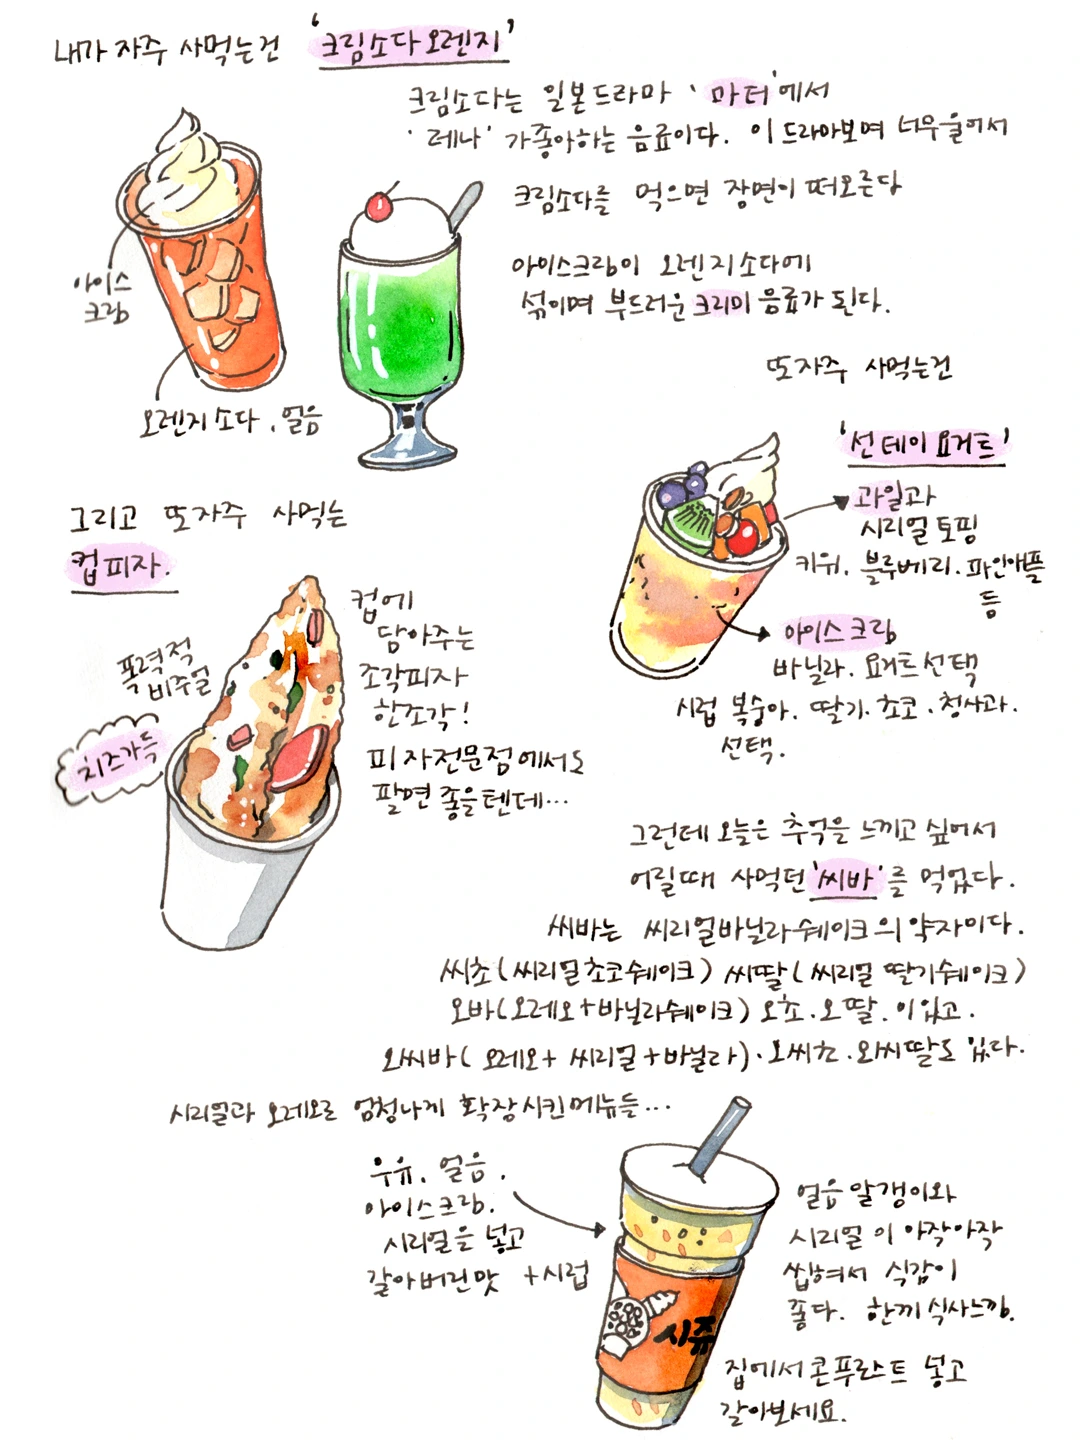 내가 자주 사먹는건 '크림소다오렌지'
크림소다는 일본드라마 '마더'에서
'레나'가 좋아하는 음료이다. 이 드라마보며 너무울어서
크림소다를 먹으면 장면이 떠오른답
아이스크림이 오렌지소다에
섞이며 부드러운 크리미 음료가 된다.
아이스
크림
오렌지소다, 얼음
또자주 사먹는건
'선데이 요거트'
과일과
시리얼 토핑
키위. 블루베리. 파인애플
등
아이스크림
바닐라. 요거트선택
시럽 복숭아. 딸기. 초코. 청사과.
선택.
그리고 또자주 사먹는
컵피자.
컵에
담아주는
조각피자
한조각!
폭력적
비주얼
치즈가득
피자전문점에서도
팔면 좋을텐데...
그런데 오늘은 추억을 느끼고 싶어서
어릴때 사먹던 '씨바'를 먹었다.
씨바는 씨리얼바닐라쉐이크의 약자이다.
씨초(씨리얼초코쉐이크) 씨딸(씨리얼 딸기쉐이크)
오바(오레오+바닐라쉐이크) 오초.오딸.이있고.
오씨바(오레오+씨리얼+바닐라).오씨초.오씨딸도 있다.
시리얼과 오레오로 엄청나게 확장시킨메뉴들...
우유. 얼음.
아이스크림.
시리얼을 넣고
갈아버린맛 +시럽
시쥬
얼음알갱이와
시리얼이 아작아작
씹혀서 식감이
좋다. 한끼식사느낌.
집에서콘푸로스트 넣고
갈아보세요.